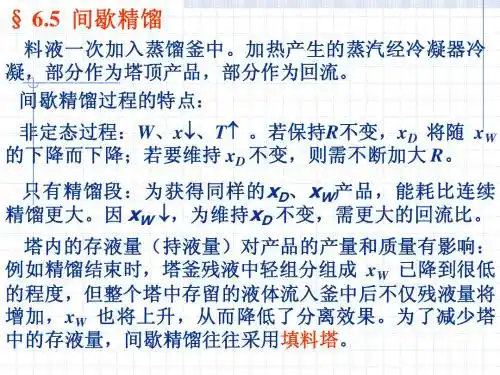 § 6.5 间歇精馏
料液一次加入蒸馏釜中。加热产生的蒸汽经冷凝器冷
凝，部分作为塔顶产品，部分作为回流。
间歇精馏过程的特点：
非定态过程：W、x↓、T↑ 。若保持R不变，xD 将随 xW
的下降而下降；若要维持 xD 不变，则需不断加大 R。
只有精馏段：为获得同样的xD、xW产品，能耗比连续
精馏更大。因 xW ↓，为维持xD 不变，需更大的回流比。
塔内的存液量（持液量）对产品的产量和质量有影响：
例如精馏结束时，塔釜残液中轻组分组成 xW 已降到很低
的程度，但整个塔中存留的液体流入釜中后不仅残液量将
增加，xW 也将上升，从而降低了分离效果。为了减少塔
中的存液量，间歇精馏往往采用填料塔。